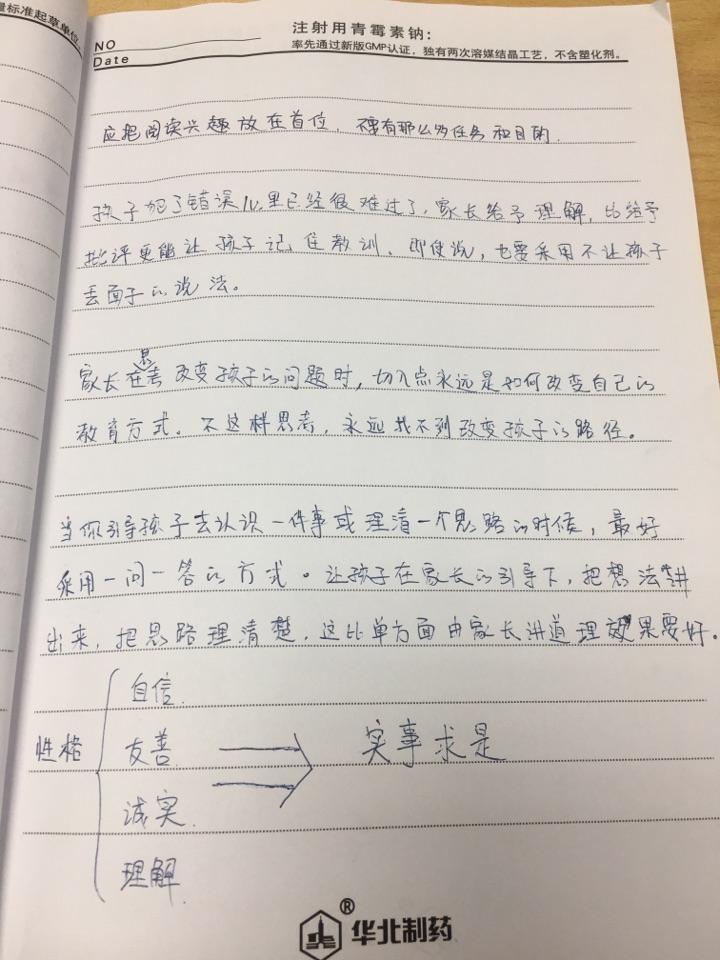 量标准起草单位
NO
Date
注射用青霉素钠：
率先通过新版GMP认证，独有两次溶媒结晶工艺，不含塑化剂。
应把阅读兴趣放在首位，不要有那么多任务和目的.
孩子犯了错误心里已经很难过了，家长给予理解，比给予
批评更能让孩子记住教训，即使说，也要采用不让孩子
丢面子的说法。
家长在思考改变孩子的问题时，切入点永远是如何改变自己的
教育方式。不这样思考，永远找不到改变孩子的路径。
当你引导孩子去认识一件事或理清一个思路的时候，最好
采用一问一答的方式。让孩子在家长的引导下，把想法讲
出来，把思路理清楚，这比单方面由家长讲道理效果要好。
性格
自信
友善
诚实
理解
实事求是
®
华北制药